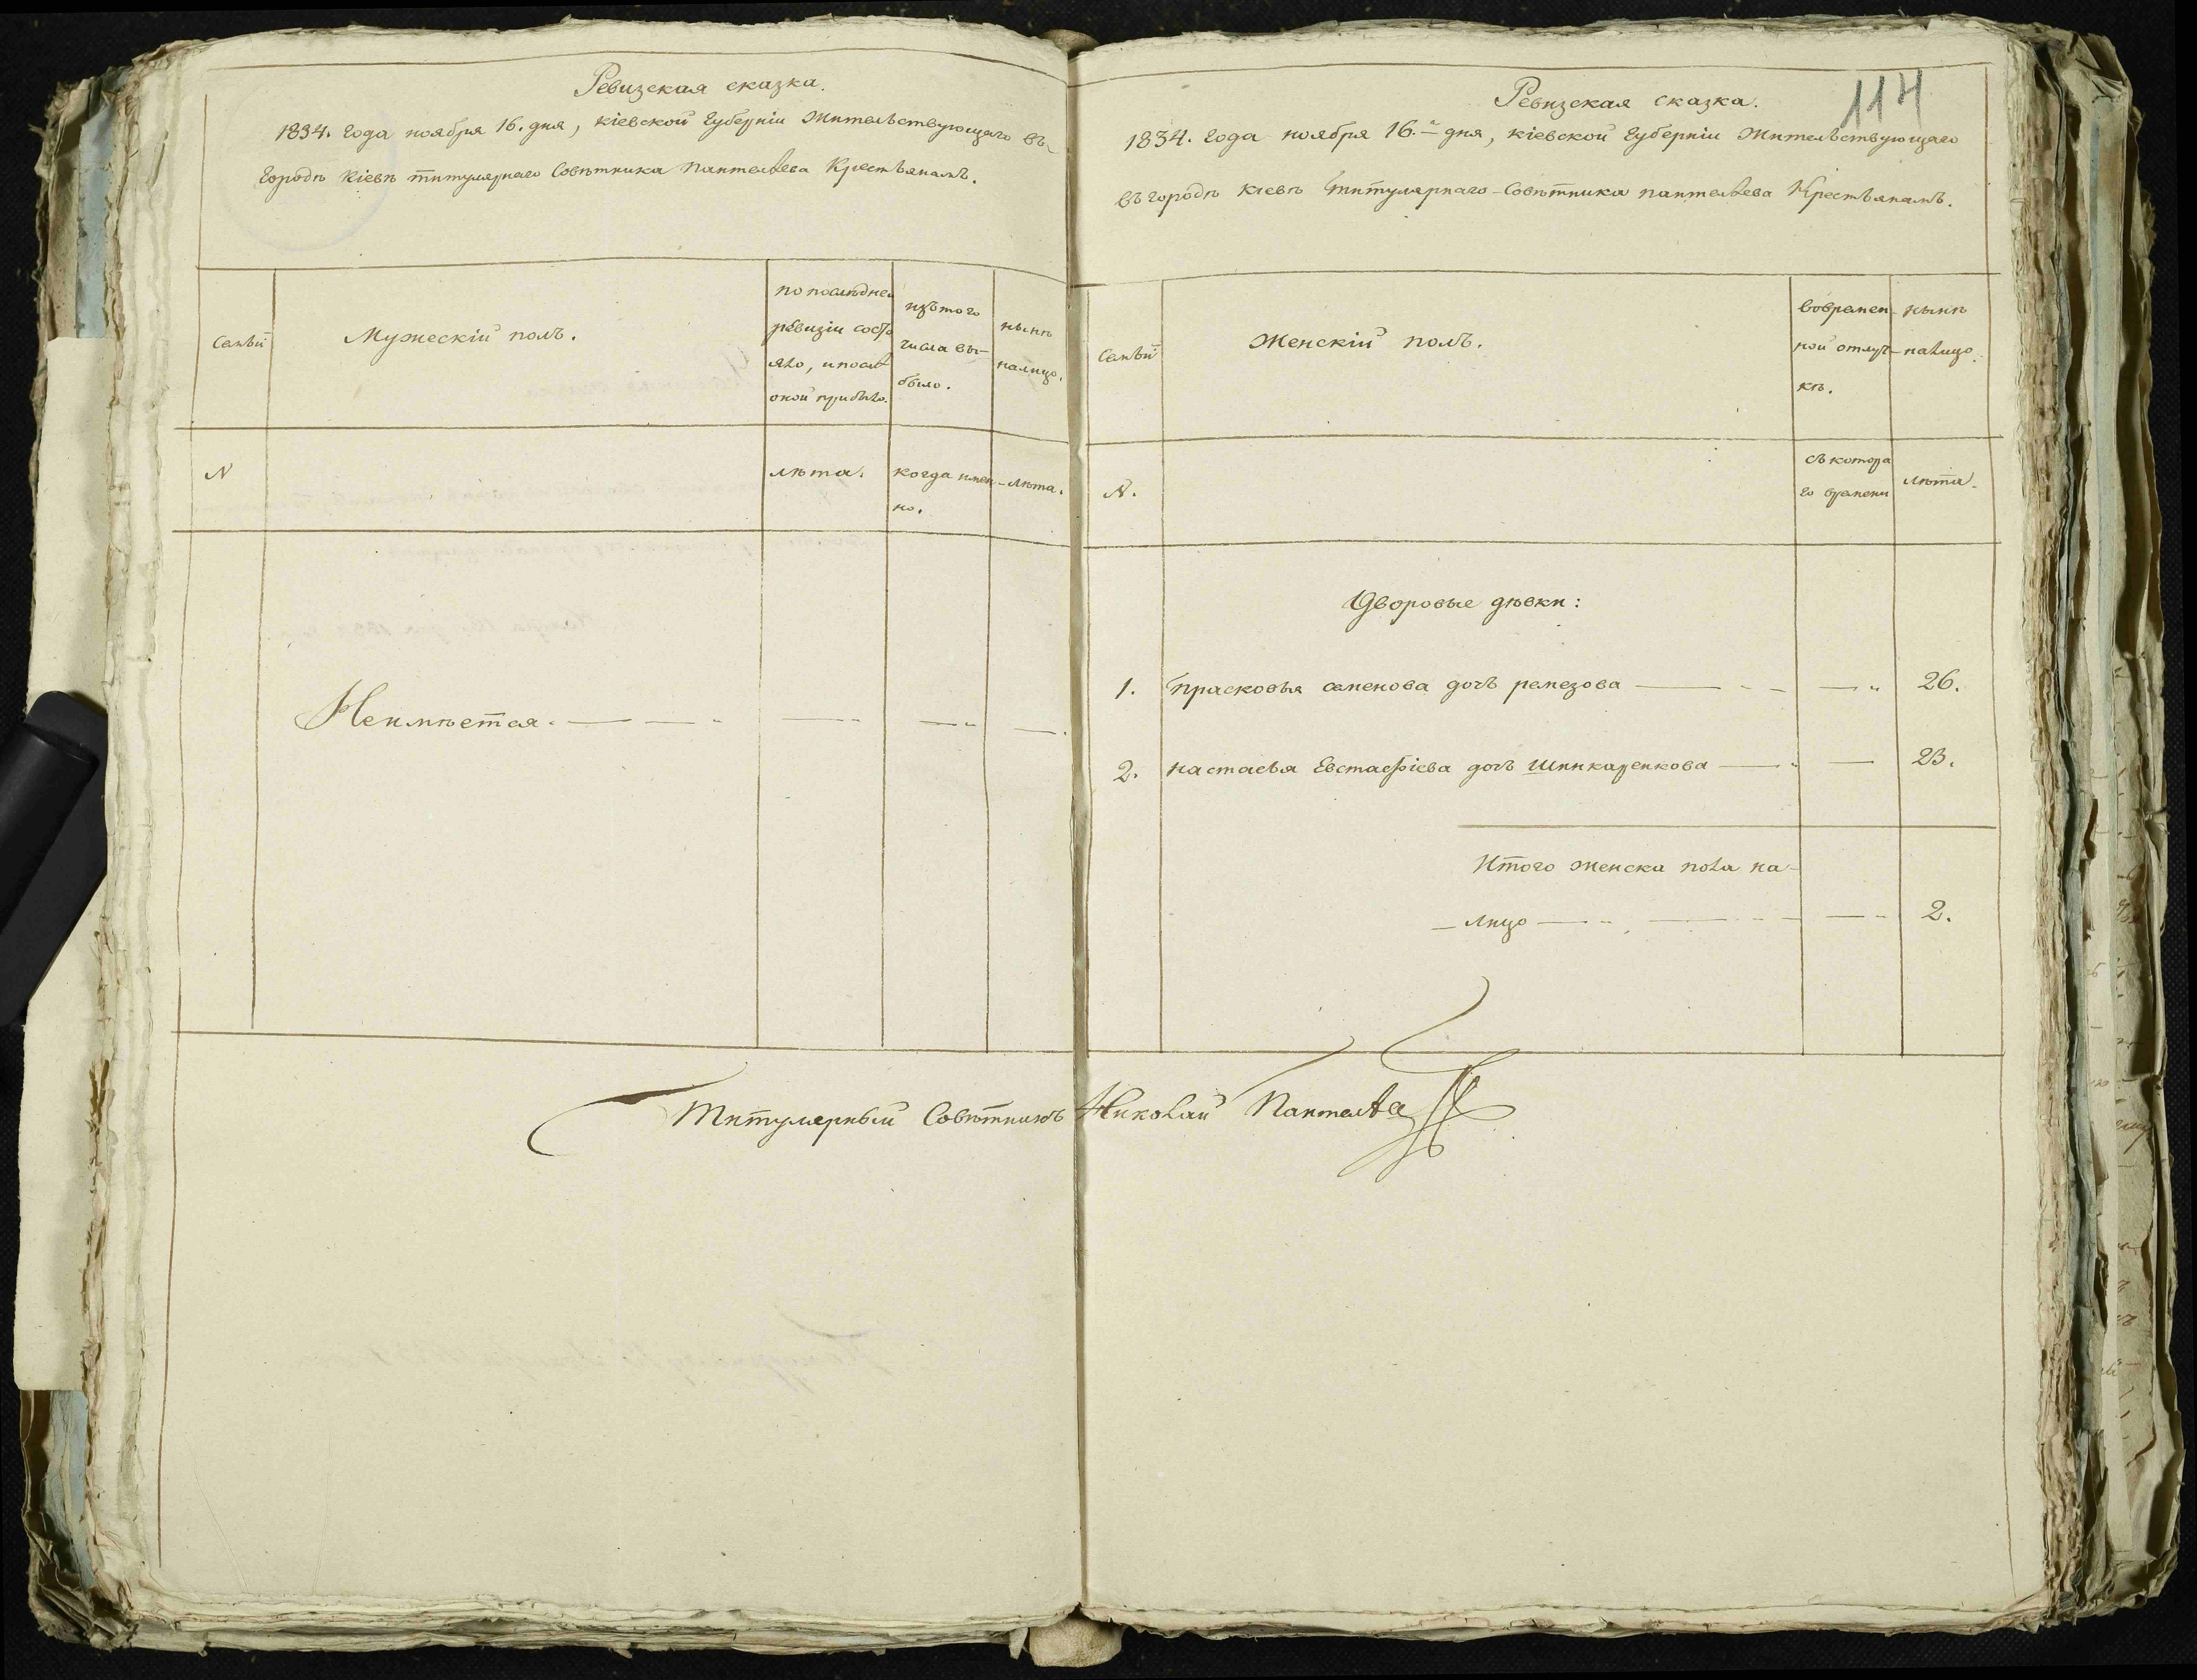 Ревизская сказка.
1834. года ноября 16. дня, кіевской губерніи жительствующаго въ
городѣ кіевѣ титулярнаго Совѣтника пантелѣева Крестьянамъ.
Семьи
Мужескій полъ.
по послѣдней
ревизіи состо
яло, и послѣ
оной прибыло.
изъ того
числа вы-
было.
нынѣ
налицо.
N
лѣта.
когда имен-
но.
лѣта.
Неимѣется.
114
Ревизская сказка.
1834. года ноября 16.го дня, кіевской губерніи жительствующаго
въ городѣ кіевѣ титулярнаго-Совѣтника пантелѣева Крестьянамъ.
Семьи
Женскій полъ.
во времен-
ной отлуч-
кѣ.
нынѣ
налицо.
N.
съ котора
го времени
лѣта.
Дворовые дѣвки:
1. прасковья семенова дочь ремезова 26.
2. настасья Евстафіева дочь шинкаренкова 23.
Итого женска пола на-
лицо 2.
Титулярный Совѣтникъ Николай Пантелѣев